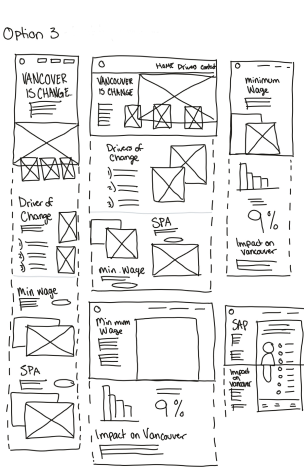 Option 3
VANCOUVER
IS CHANGE
Driver of
Change
1)
2)
3)
Min wage
SPA
HOME Drivers contact
VANCOUVER
IS CHANGE
Drivers of
Change
1)
2)
3)
SPA
min. wage
minimum
Wage
9%
Impact on
Vancouver
Min mum
Wage
9%
Impact on Vancouver
SAP
Impact
on
Vancouver